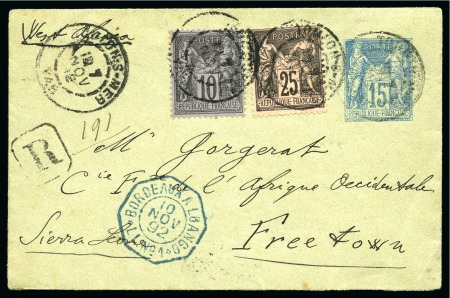 West Africa
POSTE
10
REPUBLIQUE FRANÇAISE
POSTE
25
REPUBLIQUE FRANÇAISE
POSTE
15
REPUBLIQUE FRANÇAISE
NOV
VAR
191
R
Mr Gorgerat
Cie Fse de l'Afrique Occidentale
BORDEAUX A LOANGO
10
NOV
92
Sierra Leone
Freetown